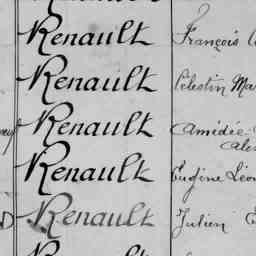 Renault François
Renault Célestin
Renault Amédée
Renault Eugène Léon
Renault Julien